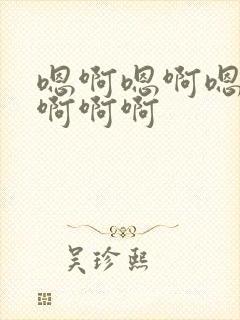 嗯啊嗯啊嗯
啊啊啊
吴珍熙